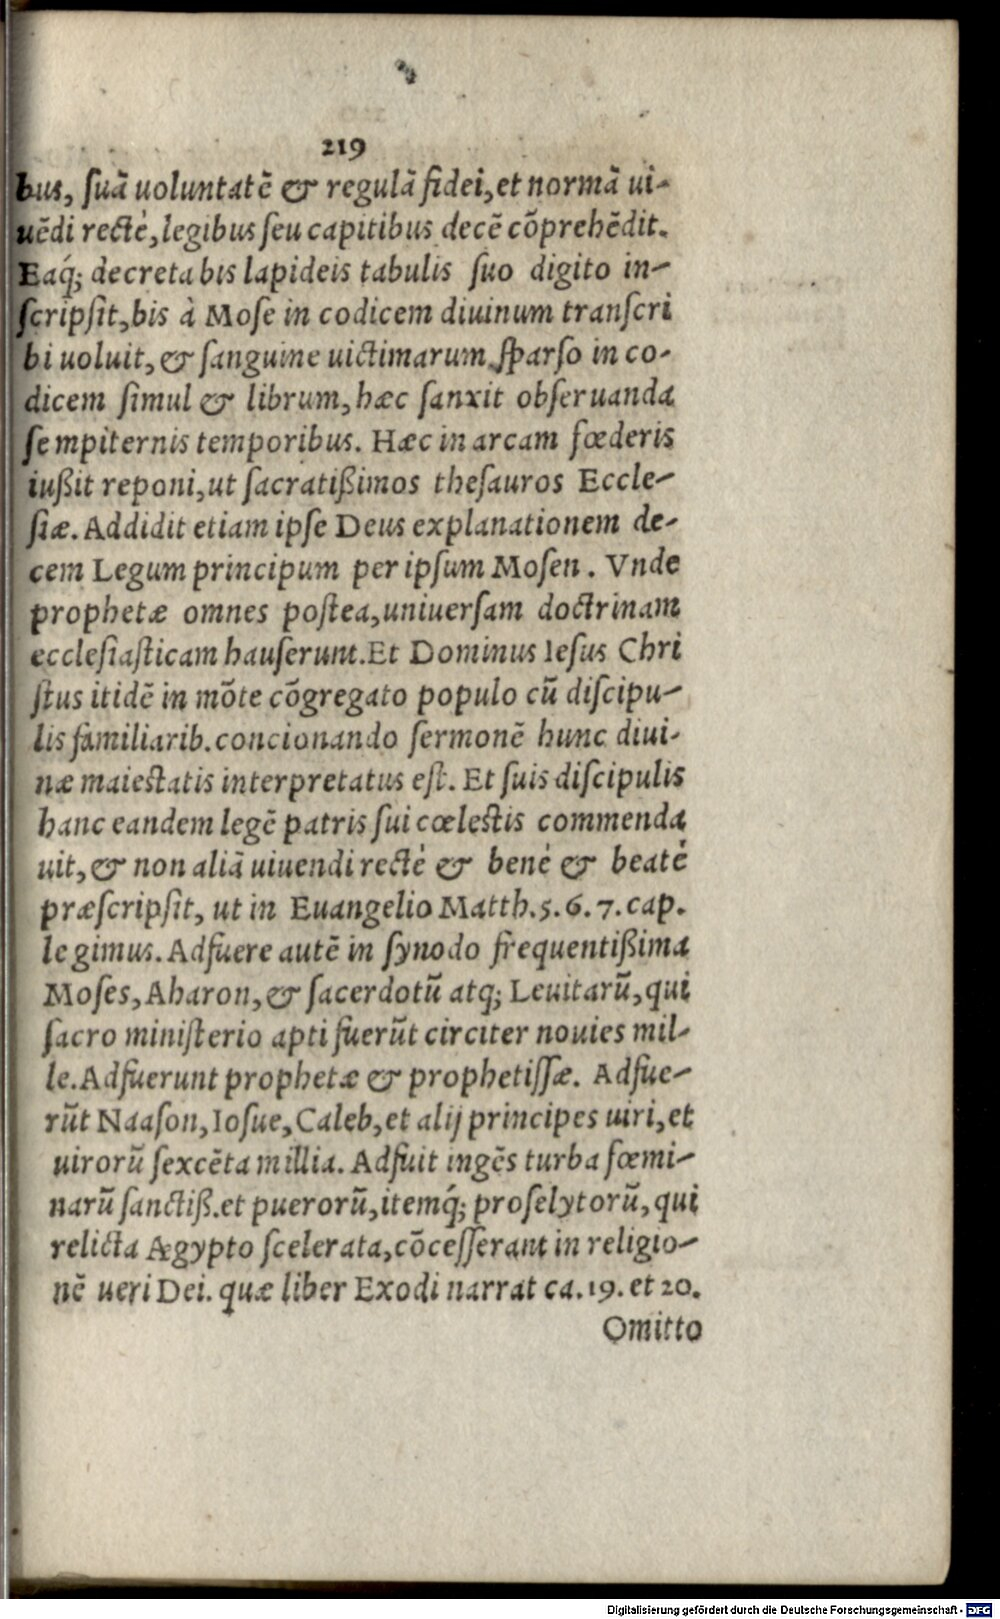 219
bus, ſuā uoluntatē & regulā fidei, et normā ui-
uēdi rectè, legibus ſeu capitibus decē cōprehēdit.
Eaq́; decreta bis lapideis tabulis ſuo digito in-
ſcripſit, bis à Moſe in codicem diuinum tranſcri
bi uoluit, & ſanguine uictimarum ſparſo in co-
dicem ſimul & librum, hæc ſanxit obſeruanda
ſempiternis temporibus. Hæc in arcam fœderis
iußit reponi, ut ſacratißimos theſauros Eccle-
ſiæ. Addidit etiam ipſe Deus explanationem de-
cem Legum principum per ipſum Moſen. Vnde
prophetæ omnes poſtea, uniuerſam doctrinam
eccleſiaſticam hauſerunt. Et Dominus Ieſus Chri
ſtus itidē in mōte cōgregato populo cū diſcipu-
lis familiarib. concionando ſermonē hunc diui-
næ maieſtatis interpretatus eſt. Et ſuis diſcipulis
hanc eandem legē patris ſui cœleſtis commenda
uit, & non aliā uiuendi rectè & benè & beatè
præſcripſit, ut in Euangelio Matth. 5. 6. 7. cap.
legimus. Adfuere autē in ſynodo frequentißima
Moſes, Aharon, & ſacerdotū atq; Leuitarū, qui
ſacro miniſterio apti fuerūt circiter nouies mil-
le. Adfuerunt prophetæ & prophetiſſæ. Adfue-
rūt Naaſon, Ioſue, Caleb, et alij principes uiri, et
uirorū ſexcēta millia. Adfuit ingēs turba fœmi-
narū ſanctiß. et puerorū, itemq́; proſelytorū, qui
relicta Ægypto ſcelerata, cōceſſerant in religio-
nē ueri Dei. quæ liber Exodi narrat ca. 19. et 20.
Omitto
Digitalisierung gefördert durch die Deutsche Forschungsgemeinschaft - DFG